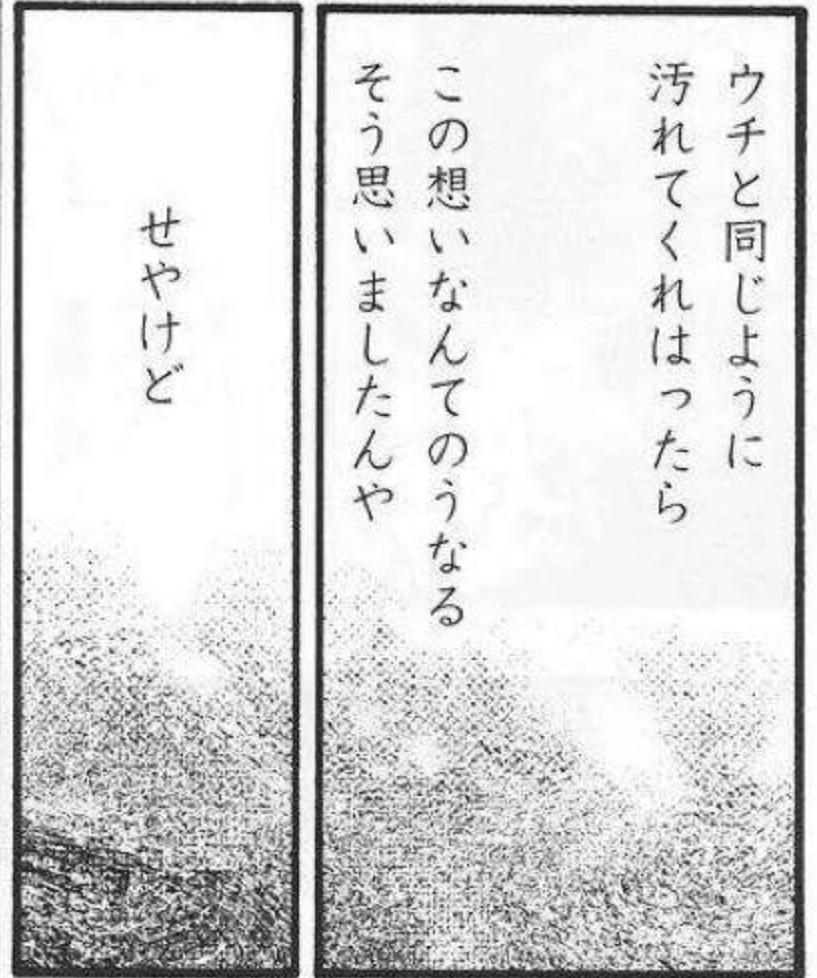 ウチと同じように
汚れてくれはったら
この想いなんてのうなる
そう思いましたんや
せやけど